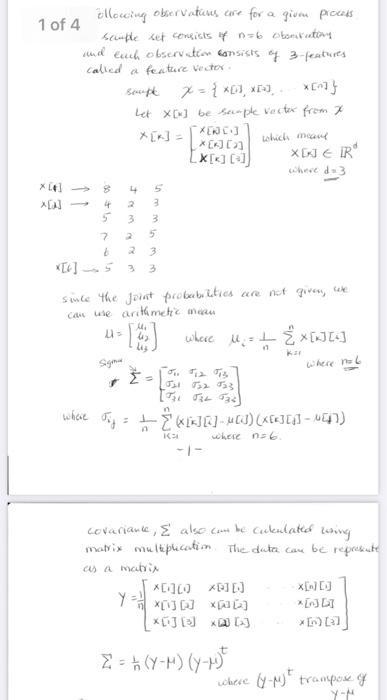 1 of 4
ollowing observations are for a given process
sample set consists of n=6 observations
and each observation consists of 3-features
called a feature vector.
sample X = { x[1], x[2], . . . x[n] }
Let X[k] be sample vector from X
X[k] = [ x[k][1]
x[k][2]
X[k][3] ] which means
X[k] ∈ ℝᵈ
where d=3
X[1] → 8 4 5
X[2] → 4 2 3
5 3 3
7 2 5
6 2 3
X[6] → 5 3 3
since the joint probabilities are not given, we
can use arithmetic mean
μ = [ μ₁
μ₂
μ₃ ] where μᵢ = 1/n Σ(k=1 to n) x[k][i]
where n=6
Sigma
Σ = [ σ₁₁ σ₁₂ σ₁₃
σ₂₁ σ₂₂ σ₂₃
σ₃₁ σ₃₂ σ₃₃ ]
where σᵢⱼ = 1/n Σ(k=1 to n) (x[k][i]-μ[i])(x[k][j]-μ[j])
where n=6.
-1-
covariance, Σ also can be calculated using
matrix multiplication. The data can be represente
as a matrix
Y = 1/n [ x[1][1] x[2][1] . . x[n][1]
x[1][2] x[2][2] x[n][2]
x[1][3] x[2][3] x[n][3] ]
Σ = 1/n (Y-M) (Y-M)ᵗ
where (Y-M)ᵗ transpose of
Y-M